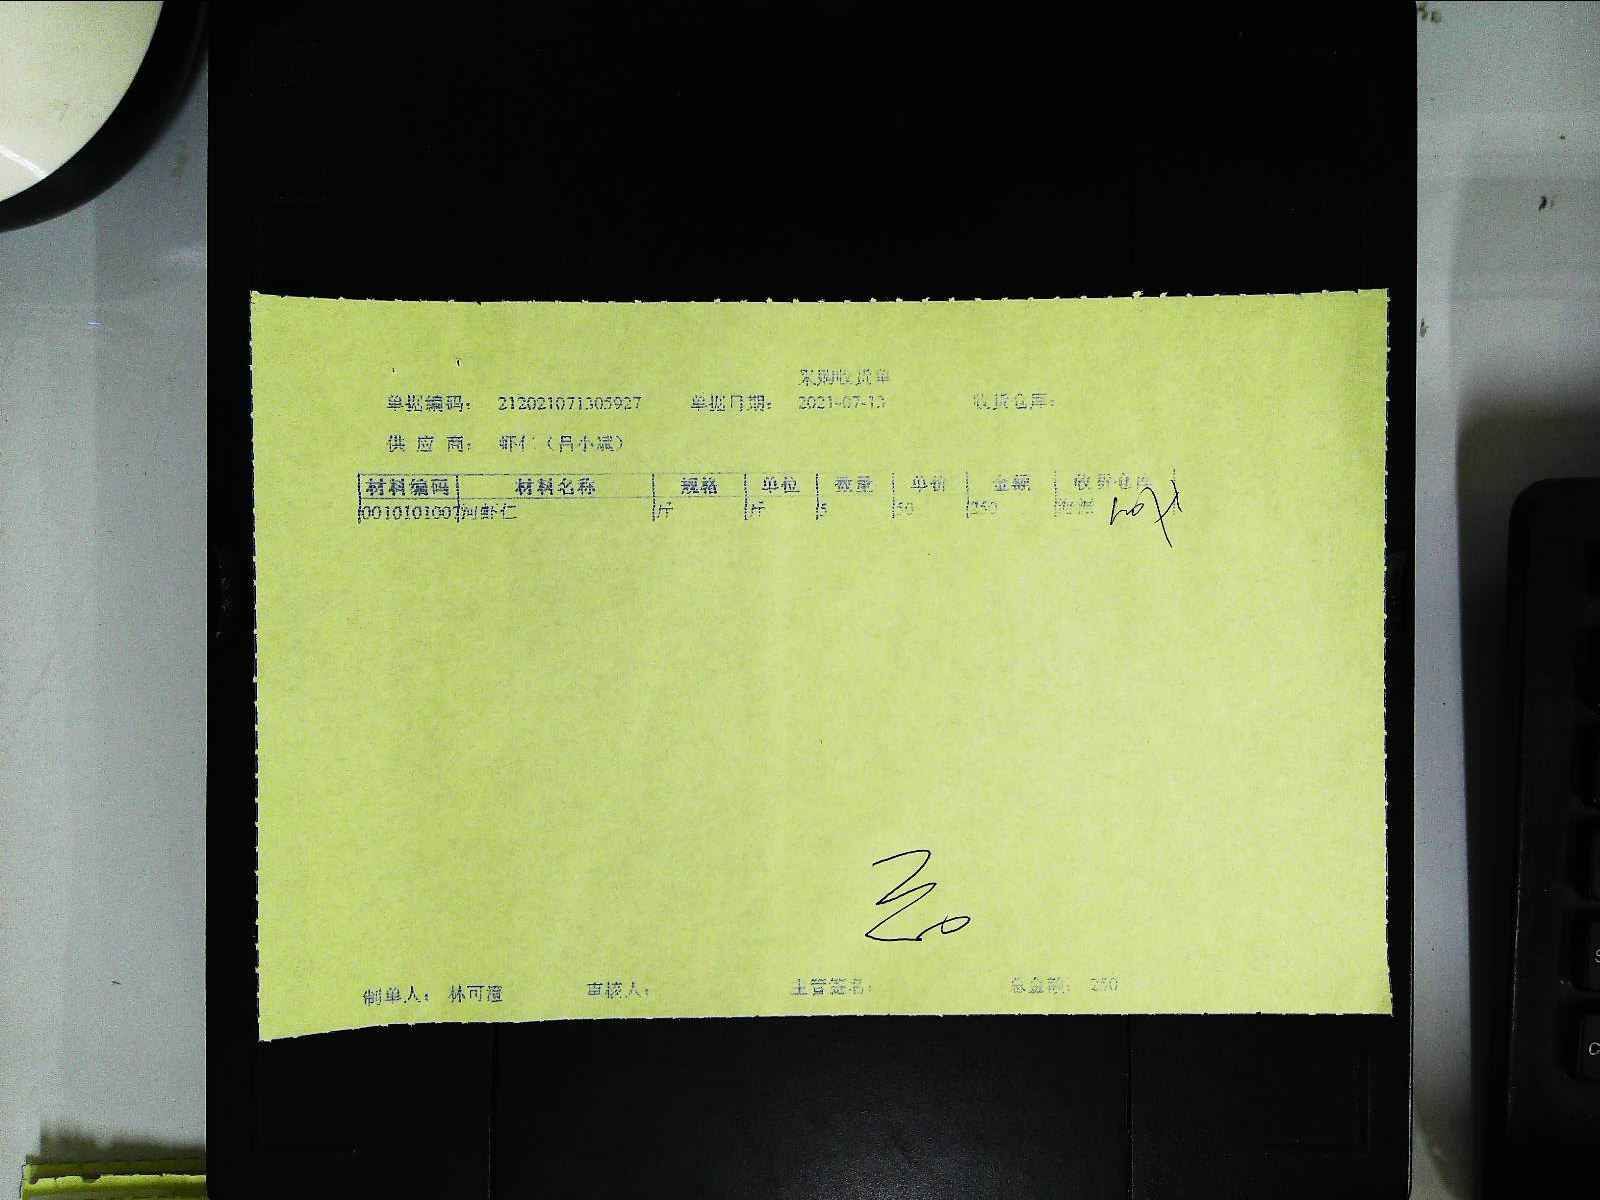 采购收货单
单据编码： 212021071305927 单据日期： 2021-07-13 收货仓库：
供 应 商： 虾仁（吕小斌）
材料编码 材料名称 规格 单位 数量 单价 金额 收货仓库
0010101007 河虾仁 斤 斤 5 50 250
制单人： 林可澄 审核人： 主管签名： 总金额： 250